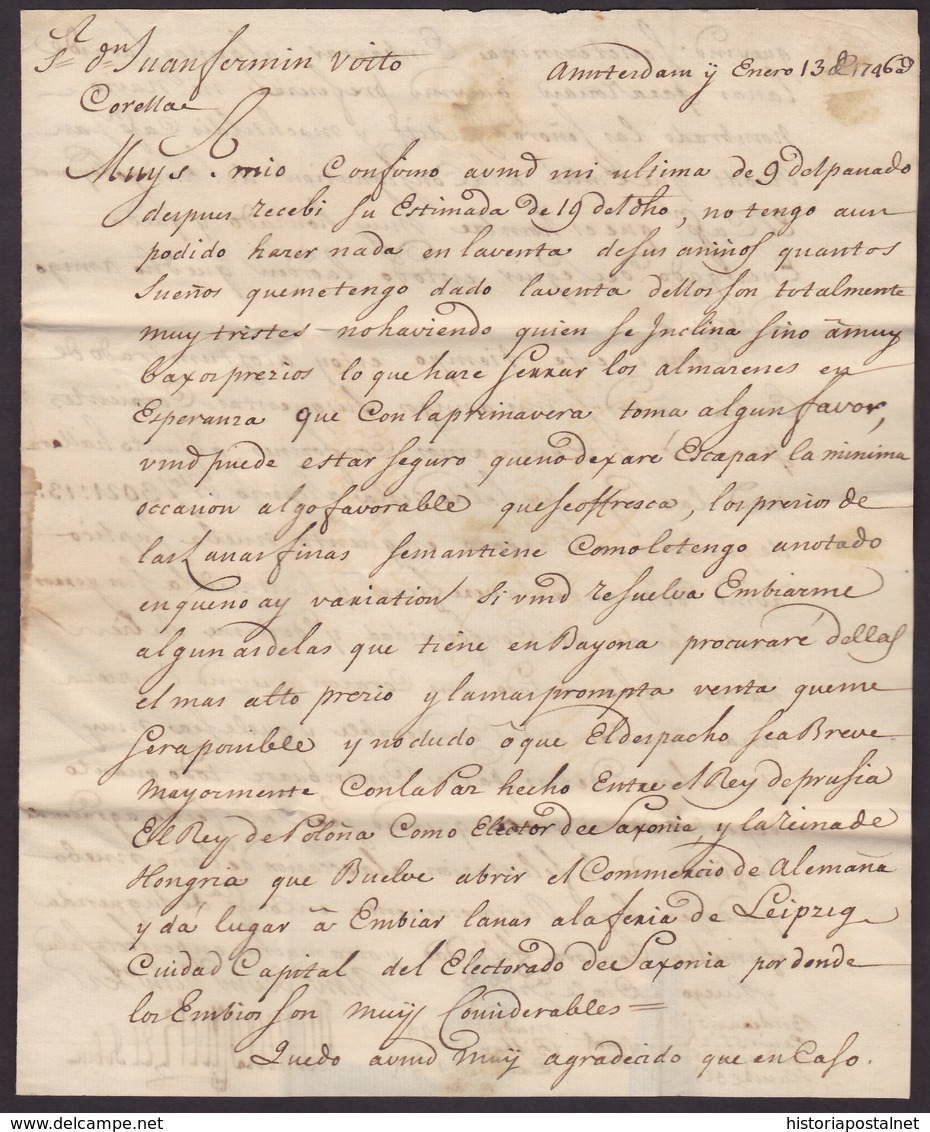 Sr. dn Juan fermin Virto
Amsterdam y Enero 13 de 1746
Corella
Muy Sr. mio Confirmo avmd mi ultima de 9 del passado
despues recebi su Estimada de 19 del dho, no tengo aun
podido hazer nada en la venta de sus aninos quantos
sueños que me tengo dado la venta dellos son totalmente
muy tristes no haviendo quien se Inclina sino â muy
baxos prezios lo que hare serrar los almazenes en
Esperanza que Con la primavera toma algun favor,
vmd puede estar seguro que no dexaré Escapar la minima
occasion algo favorable que se offresca, los presios de
las Lanas finas se mantiene Como lo tengo anotado
en que no ay variation si vmd resuelva Embiarme
algunas de las que tiene en Bayona procuraré dellas
el mas alto prezio y la mas prompta venta que me
sera possible y no dudo ô que El despacho sea Breve
Mayormente Con la Paz hecho Entre el Rey de prusia
El Rey de Poloña Como Elector de Saxonia, y la reina de
Hongria que Buelve abrir el Commercio de Alemaña
y dá lugar â Embiar lanas a la feria de Leipzig
Ciudad Capital del Electorado de Saxonia por donde
los Embios son muy Considerables =
Quedo avmd muy agradecido que en Caso.
delcampe.net
historiapostalnet